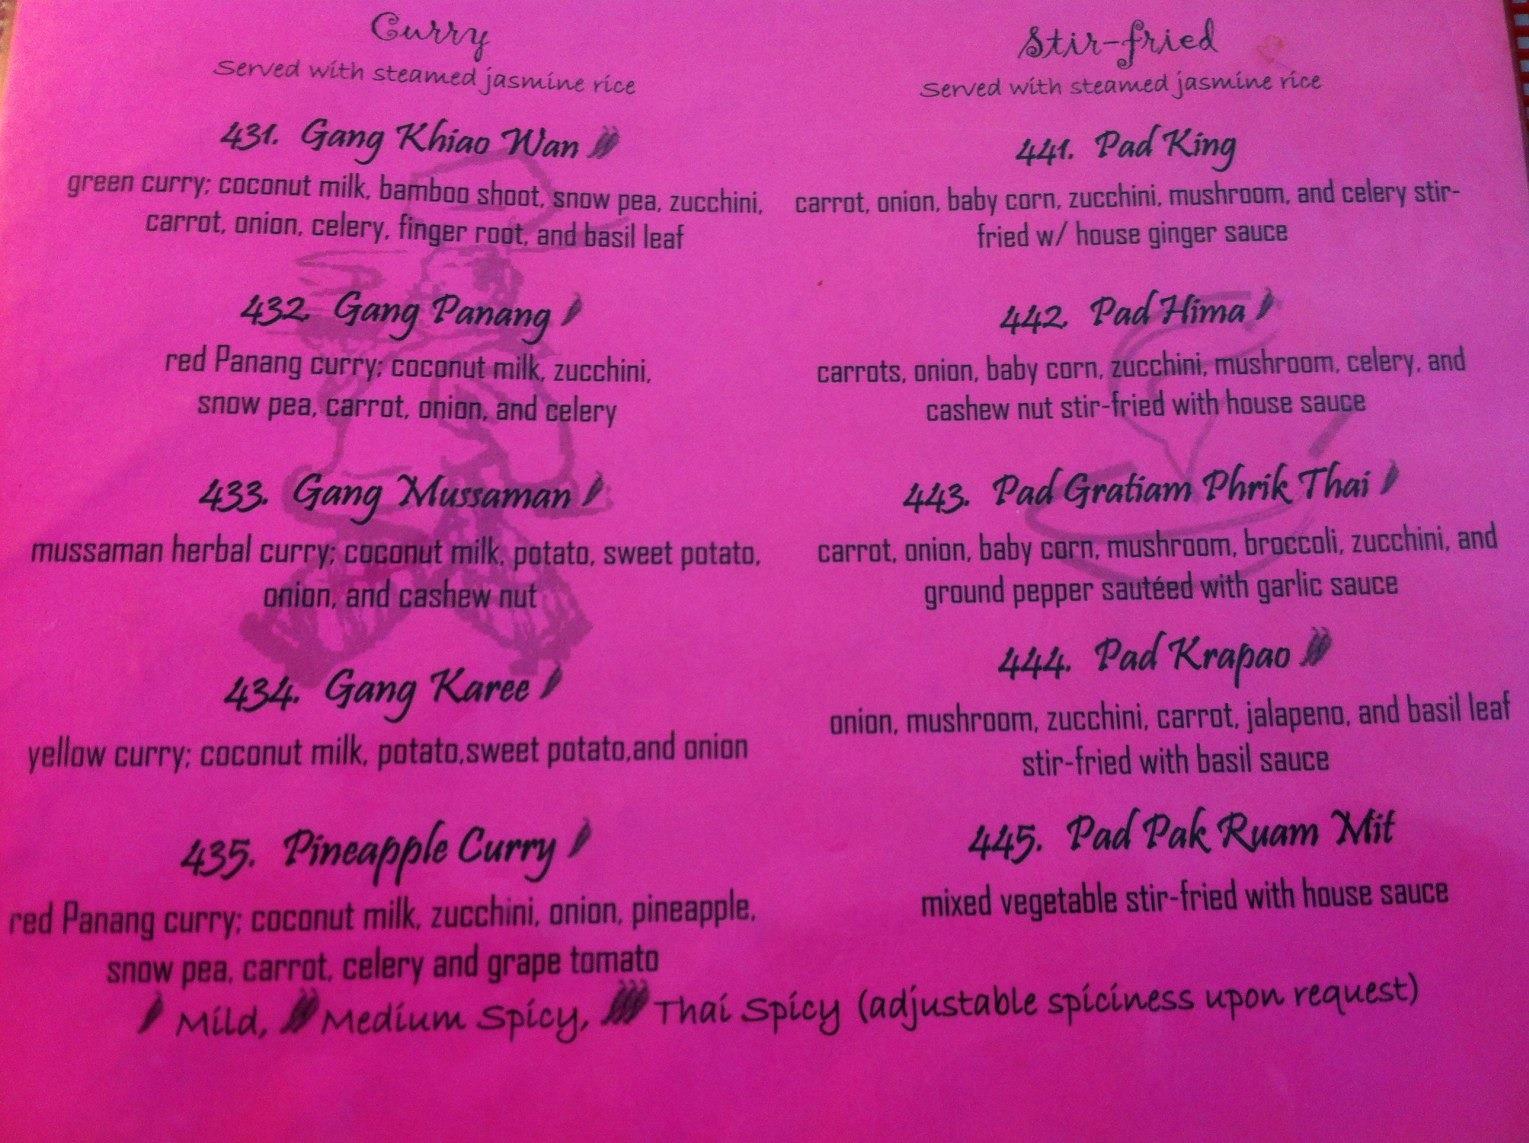 Curry
Served with steamed jasmine rice
431. Gang Khiao Wan
green curry; coconut milk, bamboo shoot, snow pea, zucchini,
carrot, onion, celery, finger root, and basil leaf
432. Gang Panang
red Panang curry; coconut milk, zucchini,
snow pea, carrot, onion, and celery
433. Gang Mussaman
mussaman herbal curry; coconut milk, potato, sweet potato,
onion, and cashew nut
434. Gang Karee
yellow curry; coconut milk, potato,sweet potato,and onion
435. Pineapple Curry
red Panang curry; coconut milk, zucchini, onion, pineapple,
snow pea, carrot, celery and grape tomato
Stir-fried
Served with steamed jasmine rice
441. Pad King
carrot, onion, baby corn, zucchini, mushroom, and celery stir-
fried w/ house ginger sauce
442. Pad Hima
carrots, onion, baby corn, zucchini, mushroom, celery, and
cashew nut stir-fried with house sauce
443. Pad Gratiam Phrik Thai
carrot, onion, baby corn, mushroom, broccoli, zucchini, and
ground pepper sautéed with garlic sauce
444. Pad Krapao
onion, mushroom, zucchini, carrot, jalapeno, and basil leaf
stir-fried with basil sauce
445. Pad Pak Ruam Mit
mixed vegetable stir-fried with house sauce
Mild, Medium Spicy, Thai Spicy (adjustable spiciness upon request)